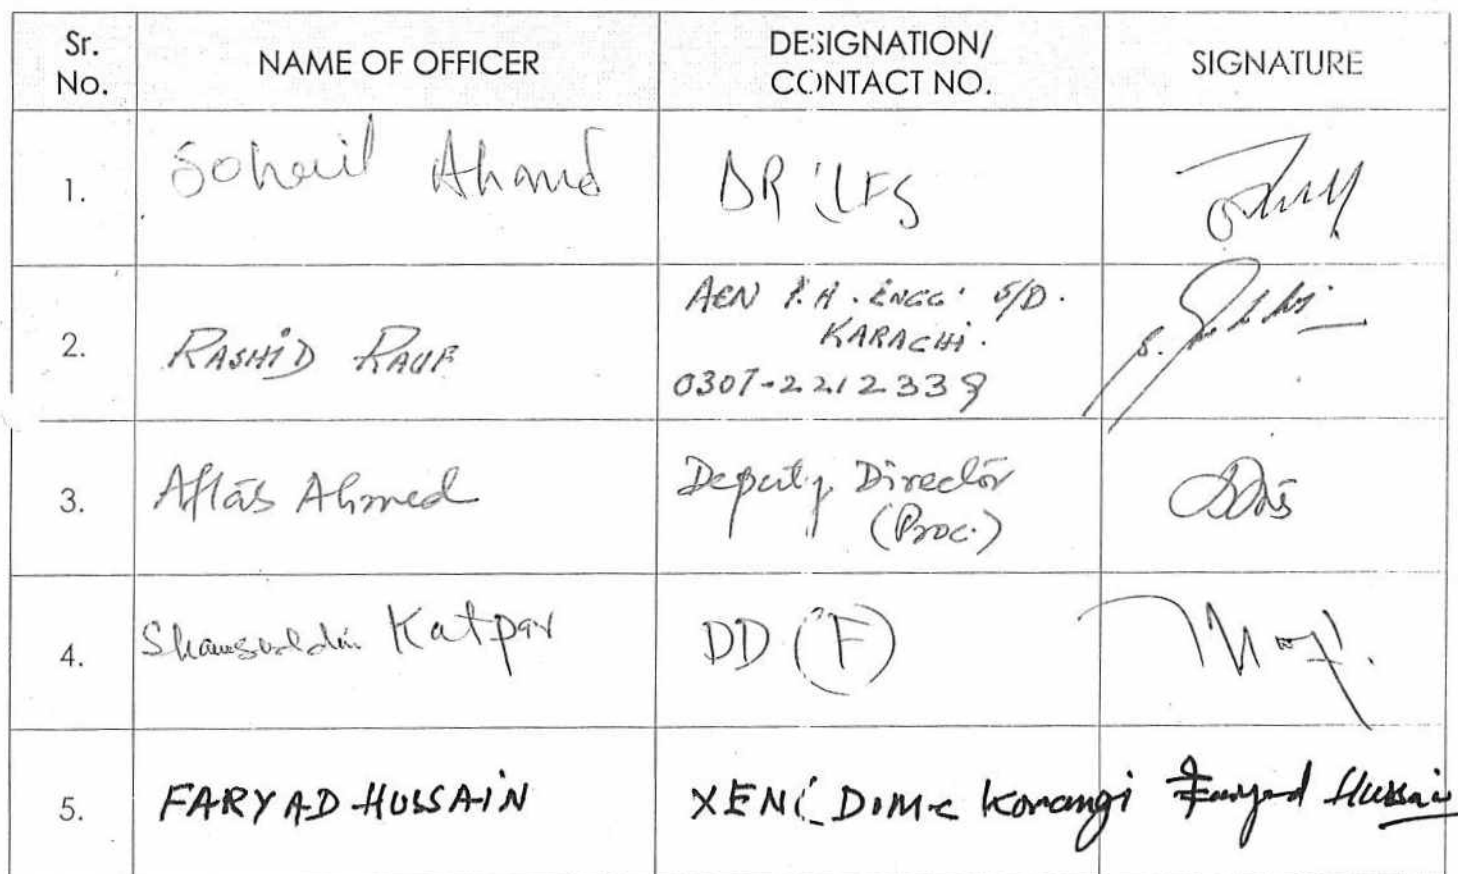 Sr. No.
NAME OF OFFICER
DESIGNATION/
CONTACT NO.
SIGNATURE
1.
Soheil Ahmed
2.
RASHID RAUF
AEN P.H. ENGG: S/D.
KARACHI.
0307-2212339
3.
Aftab Ahmed
Deputy Director
(Proc.)
4.
Shamsuddin Katpar
DD (F)
5.
FARYAD HUSSAIN
XEN Korangi
Faryad Hussain